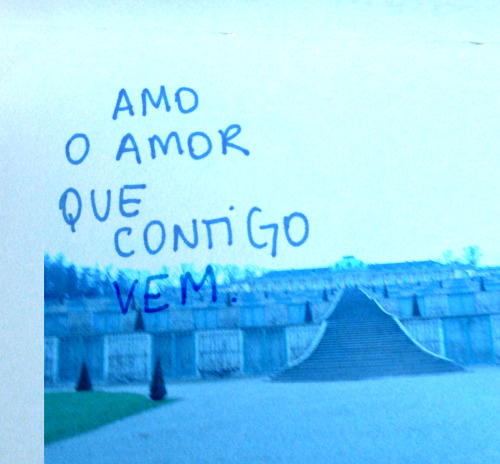 AMO
O AMOR
QUE
CONTIGO
VEM.